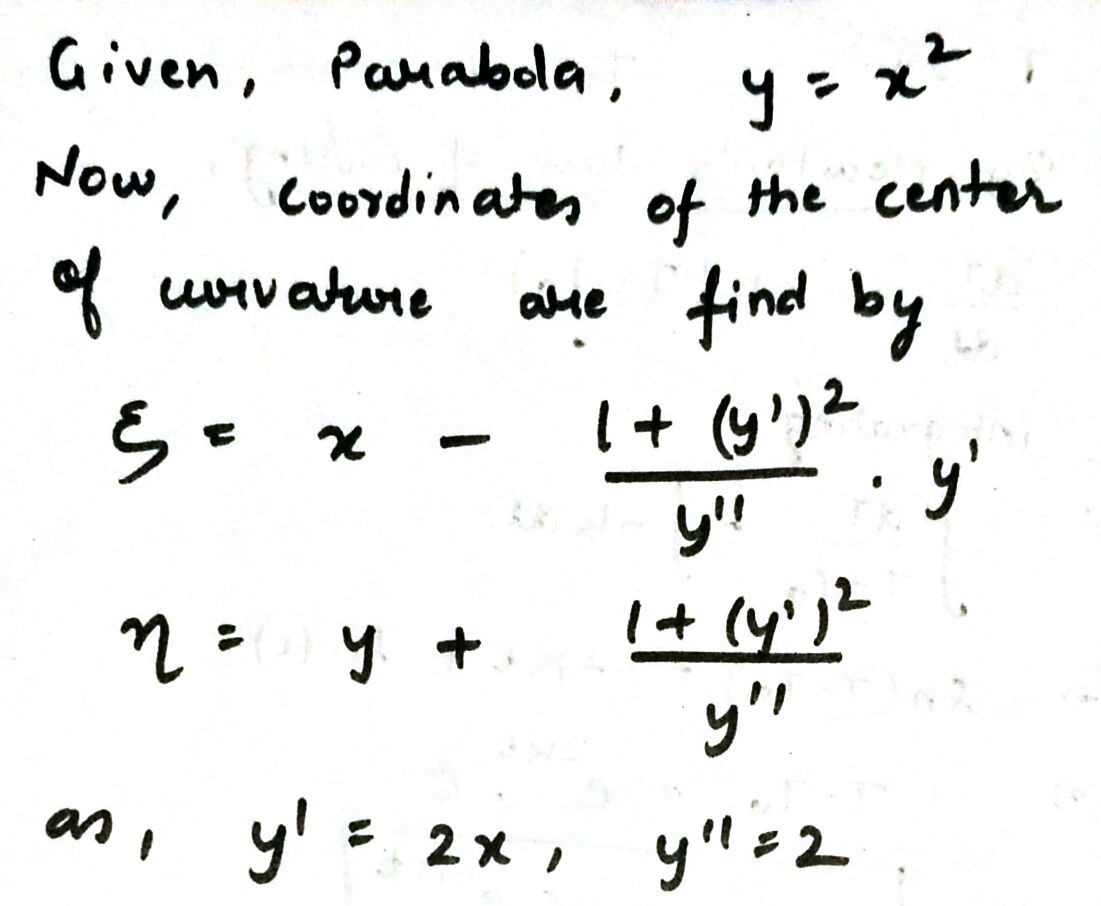 Given, Parabola, y = x²
Now, coordinates of the center
of curvature are find by
ξ = x - (1 + (y')²)/y'' . y'
η = y + (1 + (y')²)/y''
as, y' = 2x, y'' = 2